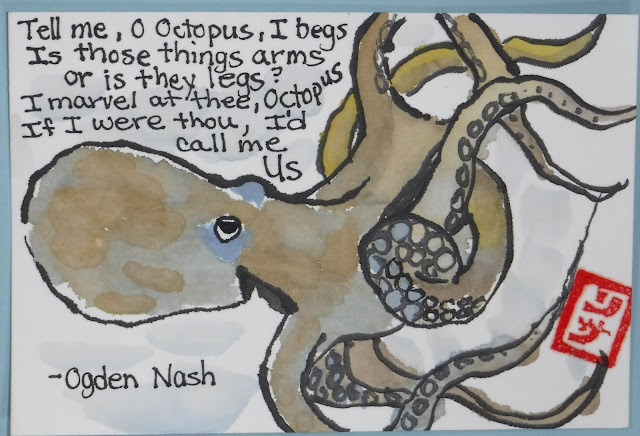 Tell me, O Octopus, I begs
Is those things arms
or is they legs?
I marvel at thee, Octopus
If I were thou, I'd
call me
Us
-Ogden Nash